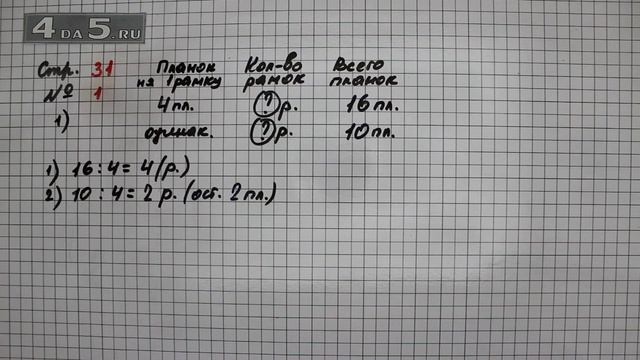 4 DA 5.RU
Стр. 31 Планок Кол-во Всего
№ 1 на 1 рамку рамок планок
1) 4 пл. ? р. 16 пл.
одинак. ? р. 10 пл.
1) 16 : 4 = 4 (р.)
2) 10 : 4 = 2 р. (ост. 2 пл.)